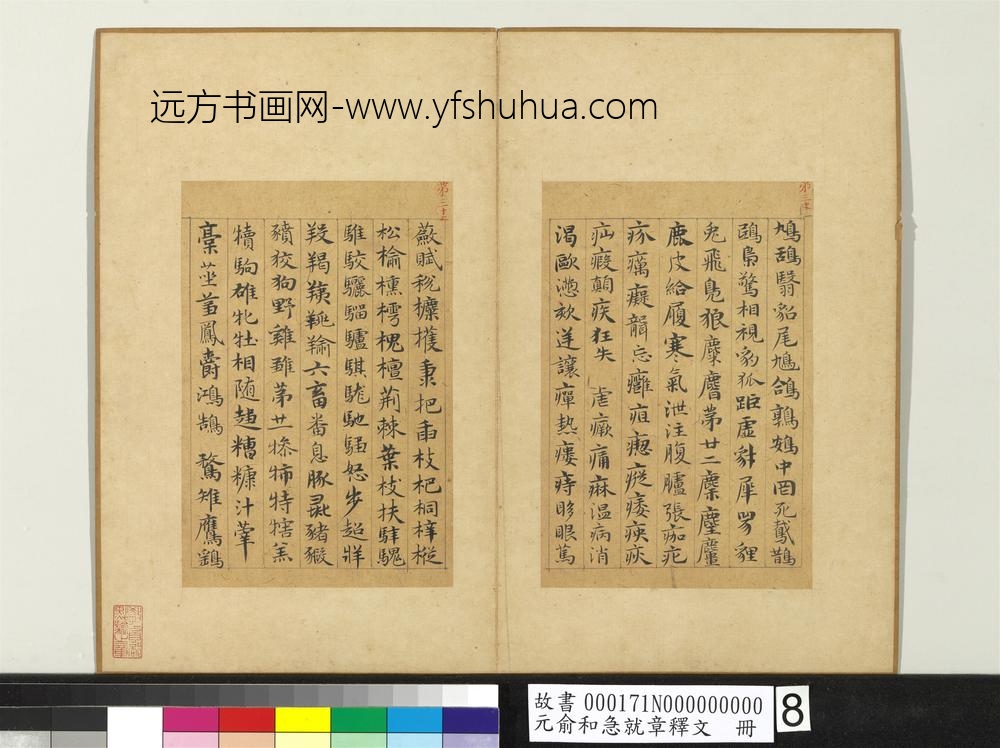 远方书画网-www.yfshuhua.com
第三十
斂賦稅穮穫秉把臿杈杷桐梓樅
松榆櫄樗槐檀荊棘葉枝扶騂騩
騅駮驪騮驢騏駹馳驅怒步超牂
羖羯羠羭六畜番息豚彘豬豭
豶狡狗野雞雛第廿一犙㸬特犗羔
犢駒雄牝牡相随趨糟糠汁滓
稾莝芻鳳爵鴻鵠 鶩雉鷹鷂
第三十一
鳩鴰翳貂尾鳩鴿鶉鴳中罔死鳶鵲
鴟梟驚相視豹狐距虛豺犀兕貍
兔飛鼠狼麋麐第廿二麇麈
鹿皮給履寒氣泄注腹臚張痂疕
疥癘癡聾忘癰疽瘛瘲痿疢
疝瘕顛疾狂失 瘧瘚痛痳温病消
渴歐懣欬逆讓癉熱瘻痔眵眼篤
故書 000171N000000000
元俞和急就章釋文 冊
8